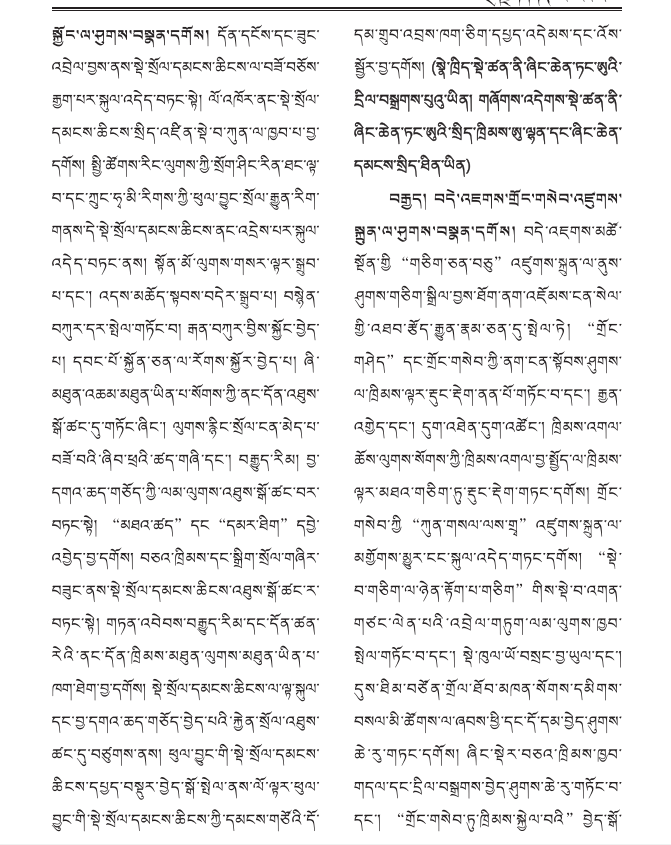 སྐྱོང་ལ་ཤུགས་བསྣན་དགོས། དོན་དངོས་དང་ཟུང་
འབྲེལ་བྱས་ནས་སྡེ་སྲོལ་དམངས་ཆིངས་ལ་བཟོ་བཅོས་
རྒྱག་པར་སྐུལ་འདེད་བཏང་སྟེ། ལོ་འཁོར་ནང་སྡེ་སྲོལ་
དམངས་ཆིངས་སྲིད་འཛིན་སྡེ་བ་ཀུན་ལ་ཁྱབ་པ་བྱ་
དགོས། སྤྱི་ཚོགས་རིང་ལུགས་ཀྱི་སྲོག་ཤིང་རིན་ཐང་ལྟ་
བ་དང་ཀྲུང་ཧྭ་མི་རིགས་ཀྱི་ཕུལ་བྱུང་སྲོལ་རྒྱུན་རིག་
གནས་དེ་སྡེ་སྲོལ་དམངས་ཆིངས་ནང་འདྲེས་པར་སྐུལ་
འདེད་བཏང་ནས། སྟོན་མོ་ལུགས་གསར་ལྟར་སྒྲུབ་
པ་དང་། འདས་མཆོད་སྟབས་བདེར་སྒྲུབ་པ། བསྙེན་
བཀུར་དར་སྤེལ་གཏོང་བ། རྒན་བཀུར་བྱིས་སྐྱོང་བྱེད་
པ། དབང་པོ་སྐྱོན་ཅན་ལ་རོགས་སྐྱོར་བྱེད་པ། ཞི་
མཐུན་འཆམ་མཐུན་ཡིན་པ་སོགས་ཀྱི་ནང་དོན་འཐུས་
སྒོ་ཚང་དུ་གཏོང་ཞིང་། ལུགས་རྙིང་སྲོལ་ངན་མེད་པ་
བཟོ་བའི་ཞིབ་ཕྲའི་ཚད་གཞི་དང་། བརྒྱུད་རིམ། བྱ་
དགའ་ཆད་གཅོད་ཀྱི་ལམ་ལུགས་འཐུས་སྒོ་ཚང་བར་
བཏང་སྟེ། “མཐའ་ཚད” དང “དམར་ཐིག” དབྱེ་
འབྱེད་བྱ་དགོས། བཅའ་ཁྲིམས་དང་སྒྲིག་སྲོལ་གཞིར་
བཟུང་ནས་སྡེ་སྲོལ་དམངས་ཆིངས་འཐུས་སྒོ་ཚང་ར་
བཏང་སྟེ། གཏན་འབེབས་བརྒྱུད་རིམ་དང་དོན་ཚན་
རེའི་ནང་དོན་ཁྲིམས་མཐུན་ལུགས་མཐུན་ཡིན་པ་
ཁག་ཐེག་བྱ་དགོས། སྡེ་སྲོལ་དམངས་ཆིངས་ལ་ལྟ་སྐུལ་
དང་བྱ་དགའ་ཆད་གཅོད་བྱེད་པའི་རྐྱེན་སྲོལ་འཐུས་
ཚང་དུ་བཙུགས་ནས། ཕུལ་བྱུང་གི་སྡེ་སྲོལ་དམངས་
ཆིངས་དཔྱད་བསྡུར་བྱེད་སྒོ་སྤེལ་ནས་ལོ་ལྟར་ཕུལ་
བྱུང་གི་སྡེ་སྲོལ་དམངས་ཆིངས་ཀྱི་དམངས་གཙོའི་དོ་
དམ་གྲུབ་འབྲས་ཁག་ཅིག་དཔྱད་འདེམས་དང་འོས་
སྦྱོར་བྱ་དགོས། (སྣེ་ཁྲིད་སྡེ་ཚན་ནི་ཞིང་ཆེན་ཏང་ཨུའི་
དྲིལ་བསྒྲགས་པུའུ་ཡིན། གཞོགས་འདེགས་སྡེ་ཚན་ནི་
ཞིང་ཆེན་ཏང་ཨུའི་སྲིད་ཁྲིམས་ཨུ་ལྷན་དང་ཞིང་ཆེན་
དམངས་སྲིད་ཐིན་ཡིན)
བརྒྱད། བདེ་འཇགས་གྲོང་གསེབ་འཛུགས་
སྐྲུན་ལ་ཤུགས་བསྣན་དགོས། བདེ་འཇགས་མཚོ་
སྔོན་གྱི “གཅིག་ཅན་བཅུ” འཛུགས་སྐྲུན་ལ་ནུས་
ཤུགས་གཅིག་སྒྲིལ་བྱས་ཐོག་ནག་འཛོམས་ངན་སེལ་
གྱི་འཐབ་རྩོད་རྒྱུན་རྣམ་ཅན་དུ་སྤེལ་ཏེ། “གྲོང་
གཤེད” དང་གྲོང་གསེབ་ཀྱི་ནག་ངན་སྟོབས་ཤུགས་
ལ་ཁྲིམས་ལྟར་རྡུང་རྡེག་ནན་པོ་གཏོང་བ་དང་། རྒྱན་
འགྱེད་དང་། དུག་འཐེན་དུག་འཚོང་། ཁྲིམས་འགལ་
ཆོས་ལུགས་སོགས་ཀྱི་ཁྲིམས་འགལ་བྱ་སྤྱོད་ལ་ཁྲིམས་
ལྟར་མཐའ་གཅིག་ཏུ་རྡུང་རྡེག་གཏང་དགོས། གྲོང་
གསེབ་ཀྱི “ཀུན་གསལ་ལས་གྲྭ” འཛུགས་སྐྲུན་ལ་
མགྱོགས་མྱུར་ངང་སྐུལ་འདེད་གཏང་དགོས། “སྡེ་
བ་གཅིག་ལ་ཉེན་རྟོག་པ་གཅིག” གིས་སྡེ་བ་འགན་
གཙང་ལེན་པའི་འབྲེལ་གཏུག་ལམ་ལུགས་ཁྱབ་
སྤེལ་གཏོང་བ་དང་། སྡེ་ཁུལ་ཡོ་བསྲང་བྱ་ཡུལ་དང་།
དུས་ཐིམ་བཙོན་གྲོལ་ཐོབ་མཁན་སོགས་དམིགས་
བསལ་མི་ཚོགས་ལ་ཞབས་ཕྱི་དང་དོ་དམ་བྱེད་ཤུགས་
ཆེ་རུ་གཏང་དགོས། ཞིང་སྡེར་བཅའ་ཁྲིམས་ཁྱབ་
གདལ་དང་དྲིལ་བསྒྲགས་བྱེད་ཤུགས་ཆེ་རུ་གཏོང་བ་
དང་། “གྲོང་གསེབ་ཏུ་ཁྲིམས་སྐྱེལ་བའི” བྱེད་སྒོ་